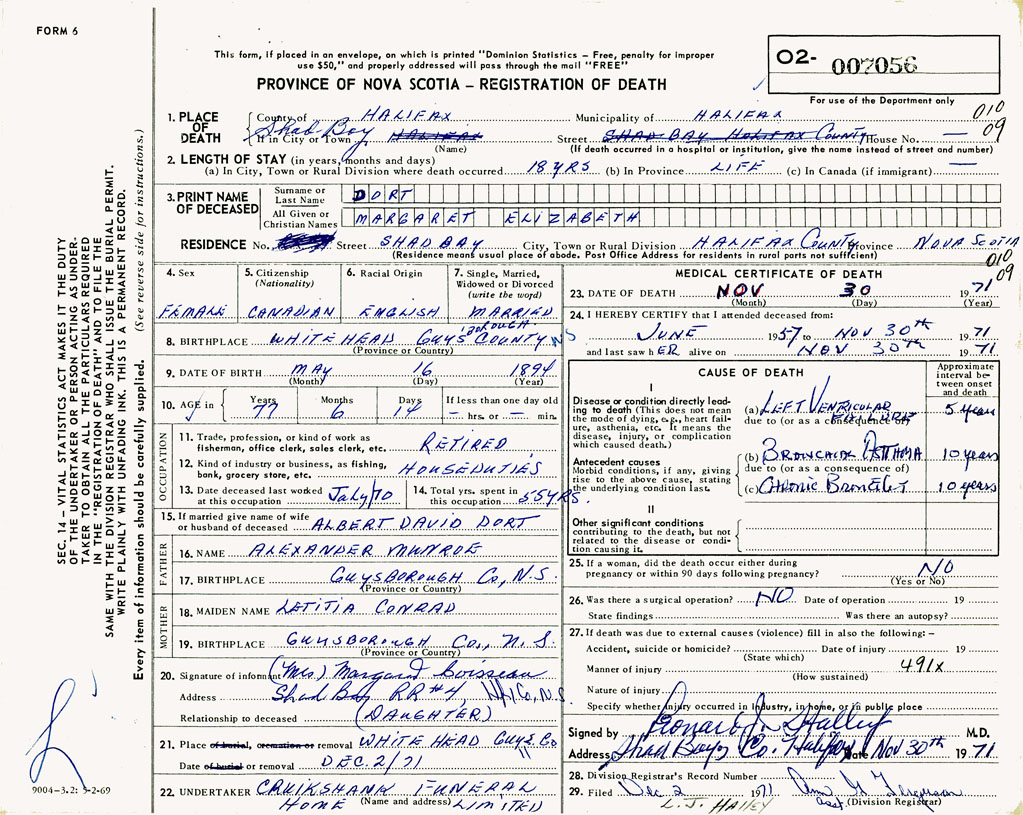 FORM 6
This form, if placed in an envelope, on which is printed "Dominion Statistics – Free, penalty for improper
use $50," and properly addressed will pass through the mail "FREE"
PROVINCE OF NOVA SCOTIA – REGISTRATION OF DEATH
O2- 007056
For use of the Department only
010
09
1. PLACE OF DEATH
County of HALIFAX Municipality of HALIFAX
Shad Bay
If in City or Town HALIFAX Street SHAD BAY HALIFAX COUNTY House No. —
(Name) (If death occurred in a hospital or institution, give the name instead of street and number)
2. LENGTH OF STAY (in years, months and days)
(a) In City, Town or Rural Division where death occurred 18 YRS (b) In Province LIFE (c) In Canada (if immigrant) —
3. PRINT NAME OF DECEASED
Surname or Last Name DORT
All Given or Christian Names MARGARET ELIZABETH
RESIDENCE No. Street SHAD BAY City, Town or Rural Division HALIFAX COUNTY Province NOVA SCOTIA
(Residence means usual place of abode. Post Office Address for residents in rural parts not sufficient)
010
09
4. Sex
FEMALE
5. Citizenship
(Nationality)
CANADIAN
6. Racial Origin
ENGLISH
7. Single, Married,
Widowed or Divorced
(write the word)
MARRIED
8. BIRTHPLACE WHITE HEAD GUYSBOROUGH COUNTY NS
(Province or Country)
9. DATE OF BIRTH MAY 16 1894
(Month) (Day) (Year)
10. AGE in Years Months Days If less than one day old
77 6 14 — hrs. or — min.
OCCUPATION
11. Trade, profession, or kind of work as
fisherman, office clerk, sales clerk, etc. RETIRED
12. Kind of industry or business, as fishing,
bank, grocery store, etc. HOUSEDUTIES
13. Date deceased last worked
at this occupation July/70
14. Total yrs. spent in
this occupation 55 YRS.
15. If married give name of wife
or husband of deceased ALBERT DAVID DORT
FATHER
16. NAME ALEXANDER MUNROE
17. BIRTHPLACE GUYSBOROUGH Co, N.S.
(Province or Country)
MOTHER
18. MAIDEN NAME LETITIA CONRAD
19. BIRTHPLACE GUYSBOROUGH Co., N.S.
(Province or Country)
20. Signature of informant (Mrs) Margaret Boisseau
Address Shad Bay RR#4 Hfx Co, N.S.
Relationship to deceased (DAUGHTER)
21. Place of burial, cremation or removal WHITE HEAD GUYS Co
Date of burial or removal DEC. 2/71
22. UNDERTAKER CRUIKSHANK FUNERAL
HOME (Name and address) LIMITED
MEDICAL CERTIFICATE OF DEATH
23. DATE OF DEATH NOV 30 1971
(Month) (Day) (Year)
24. I HEREBY CERTIFY that I attended deceased from:
JUNE 1957 to NOV 30th 1971
and last saw hER alive on NOV 30th 1971
CAUSE OF DEATH
Approximate
interval be-
tween onset
and death
I
Disease or condition directly lead-
ing to death (This does not mean
the mode of dying, e.g., heart fail-
ure, asthenia, etc. It means the
disease, injury, or complication
which caused death.)
(a) LEFT VENTRICULAR FAILURE 5 years
due to (or as a consequence of)
Antecedent causes
Morbid conditions, if any, giving
rise to the above cause, stating
the underlying condition last.
(b) BRONCHIAL ASTHMA 10 years
due to (or as a consequence of)
(c) CHRONIC BRONCHITIS 10 years
II
Other significant conditions
contributing to the death, but not
related to the disease or condi-
tion causing it.
25. If a woman, did the death occur either during
pregnancy or within 90 days following pregnancy? NO
(Yes or No)
26. Was there a surgical operation? NO Date of operation 19
State findings Was there an autopsy?
27. If death was due to external causes (violence) fill in also the following: –
Accident, suicide or homicide? Date of injury 19
(State which)
Manner of injury 491x
(How sustained)
Nature of injury
Specify whether injury occurred in industry, in home, or in public place
Signed by M.D.
Address Shad Bay, Co. Halifax Date Nov 30th 1971
28. Division Registrar's Record Number
29. Filed Dec 2 1971 Ferguson
L. J. HALLEY asst. (Division Registrar)
SEC. 14 – VITAL STATISTICS ACT MAKES IT THE DUTY
OF THE UNDERTAKER OR PERSON ACTING AS UNDER-
TAKER TO OBTAIN ALL THE PARTICULARS REQUIRED
IN THE "REGISTRATION OF DEATH" AND TO FILE THE
SAME WITH THE DIVISION REGISTRAR WHO SHALL ISSUE THE BURIAL PERMIT.
WRITE PLAINLY WITH UNFADING INK. THIS IS A PERMANENT RECORD.
Every item of information should be carefully supplied. (See reverse side for instructions.)
9004-3.2: 5-2-69